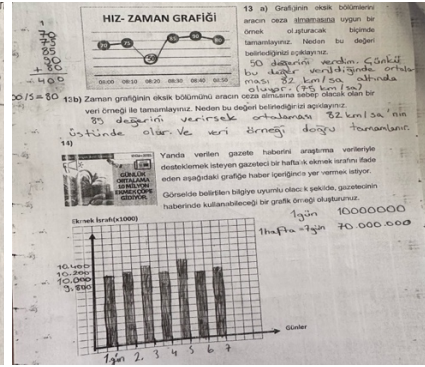 HIZ- ZAMAN GRAFİĞİ
70 75 50 85 90 80
00:00 00:10 00:20 00:30 00:40 00:50
70
75
50
85
90
+ 80
400
00/5=80
13 a) Grafiğinin eksik bölümlerini
aracın ceza almamasına uygun bir
örnek oluşturacak biçimde
tamamlayınız. Neden bu değeri
belirlediğinizi açıklayınız.
50 değerini verdim. Çünkü
bu değer verildiğinde ortala-
ması 82 km/sa altında
oluyor. (75 km/sa)
13b) Zaman grafiğinin eksik bölümünü aracın ceza almasına sebep olacak olan bir
veri örneği ile tamamlayınız. Neden bu değeri belirlediğinizi açıklayınız.
85 değerini verirsek ortalaması 82 km/sa 'nin
üstünde olur. Ve veri örneği doğru tamamlanır.
14)
GÜNLÜK
ORTALAMA
10 MİLYON
EKMEK ÇÖPE
GİDİYOR.
Yanda verilen gazete haberini araştırma verileriyle
desteklemek isteyen gazeteci bir haftalık ekmek israfını ifade
eden aşağıdaki grafiğe haber içeriğinde yer vermek istiyor.
Görselde belirtilen bilgiye uyumlu olacak şekilde, gazetecinin
haberinde kullanabileceği bir grafik örneği oluşturunuz.
1gün 10000000
1hafta =7gün 70.000.000
Ekmek İsrafı(x1000)
10.400
10.200
10.000
9.800
Günler
1.gün 2 3 4 5 6 7